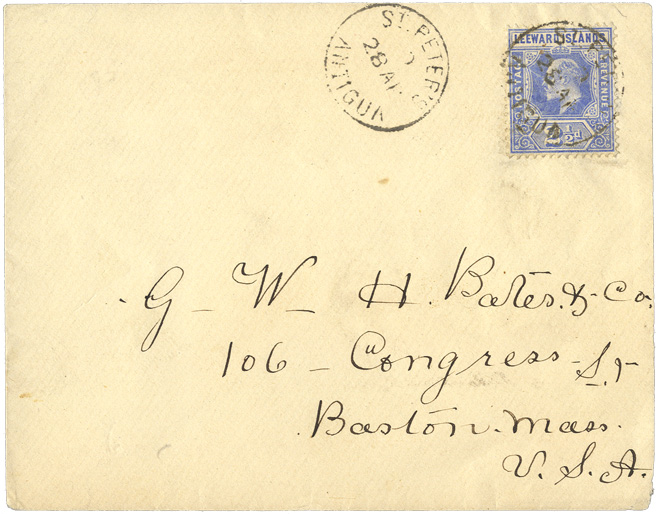 ST. PETER'S
28 AP
ANTIGUA
LEEWARD ISLANDS
POSTAGE
REVENUE
2½d
G - W - H. Bates. & - Co.
106 - Congress - St
Baston. Mass.
U. S. A.